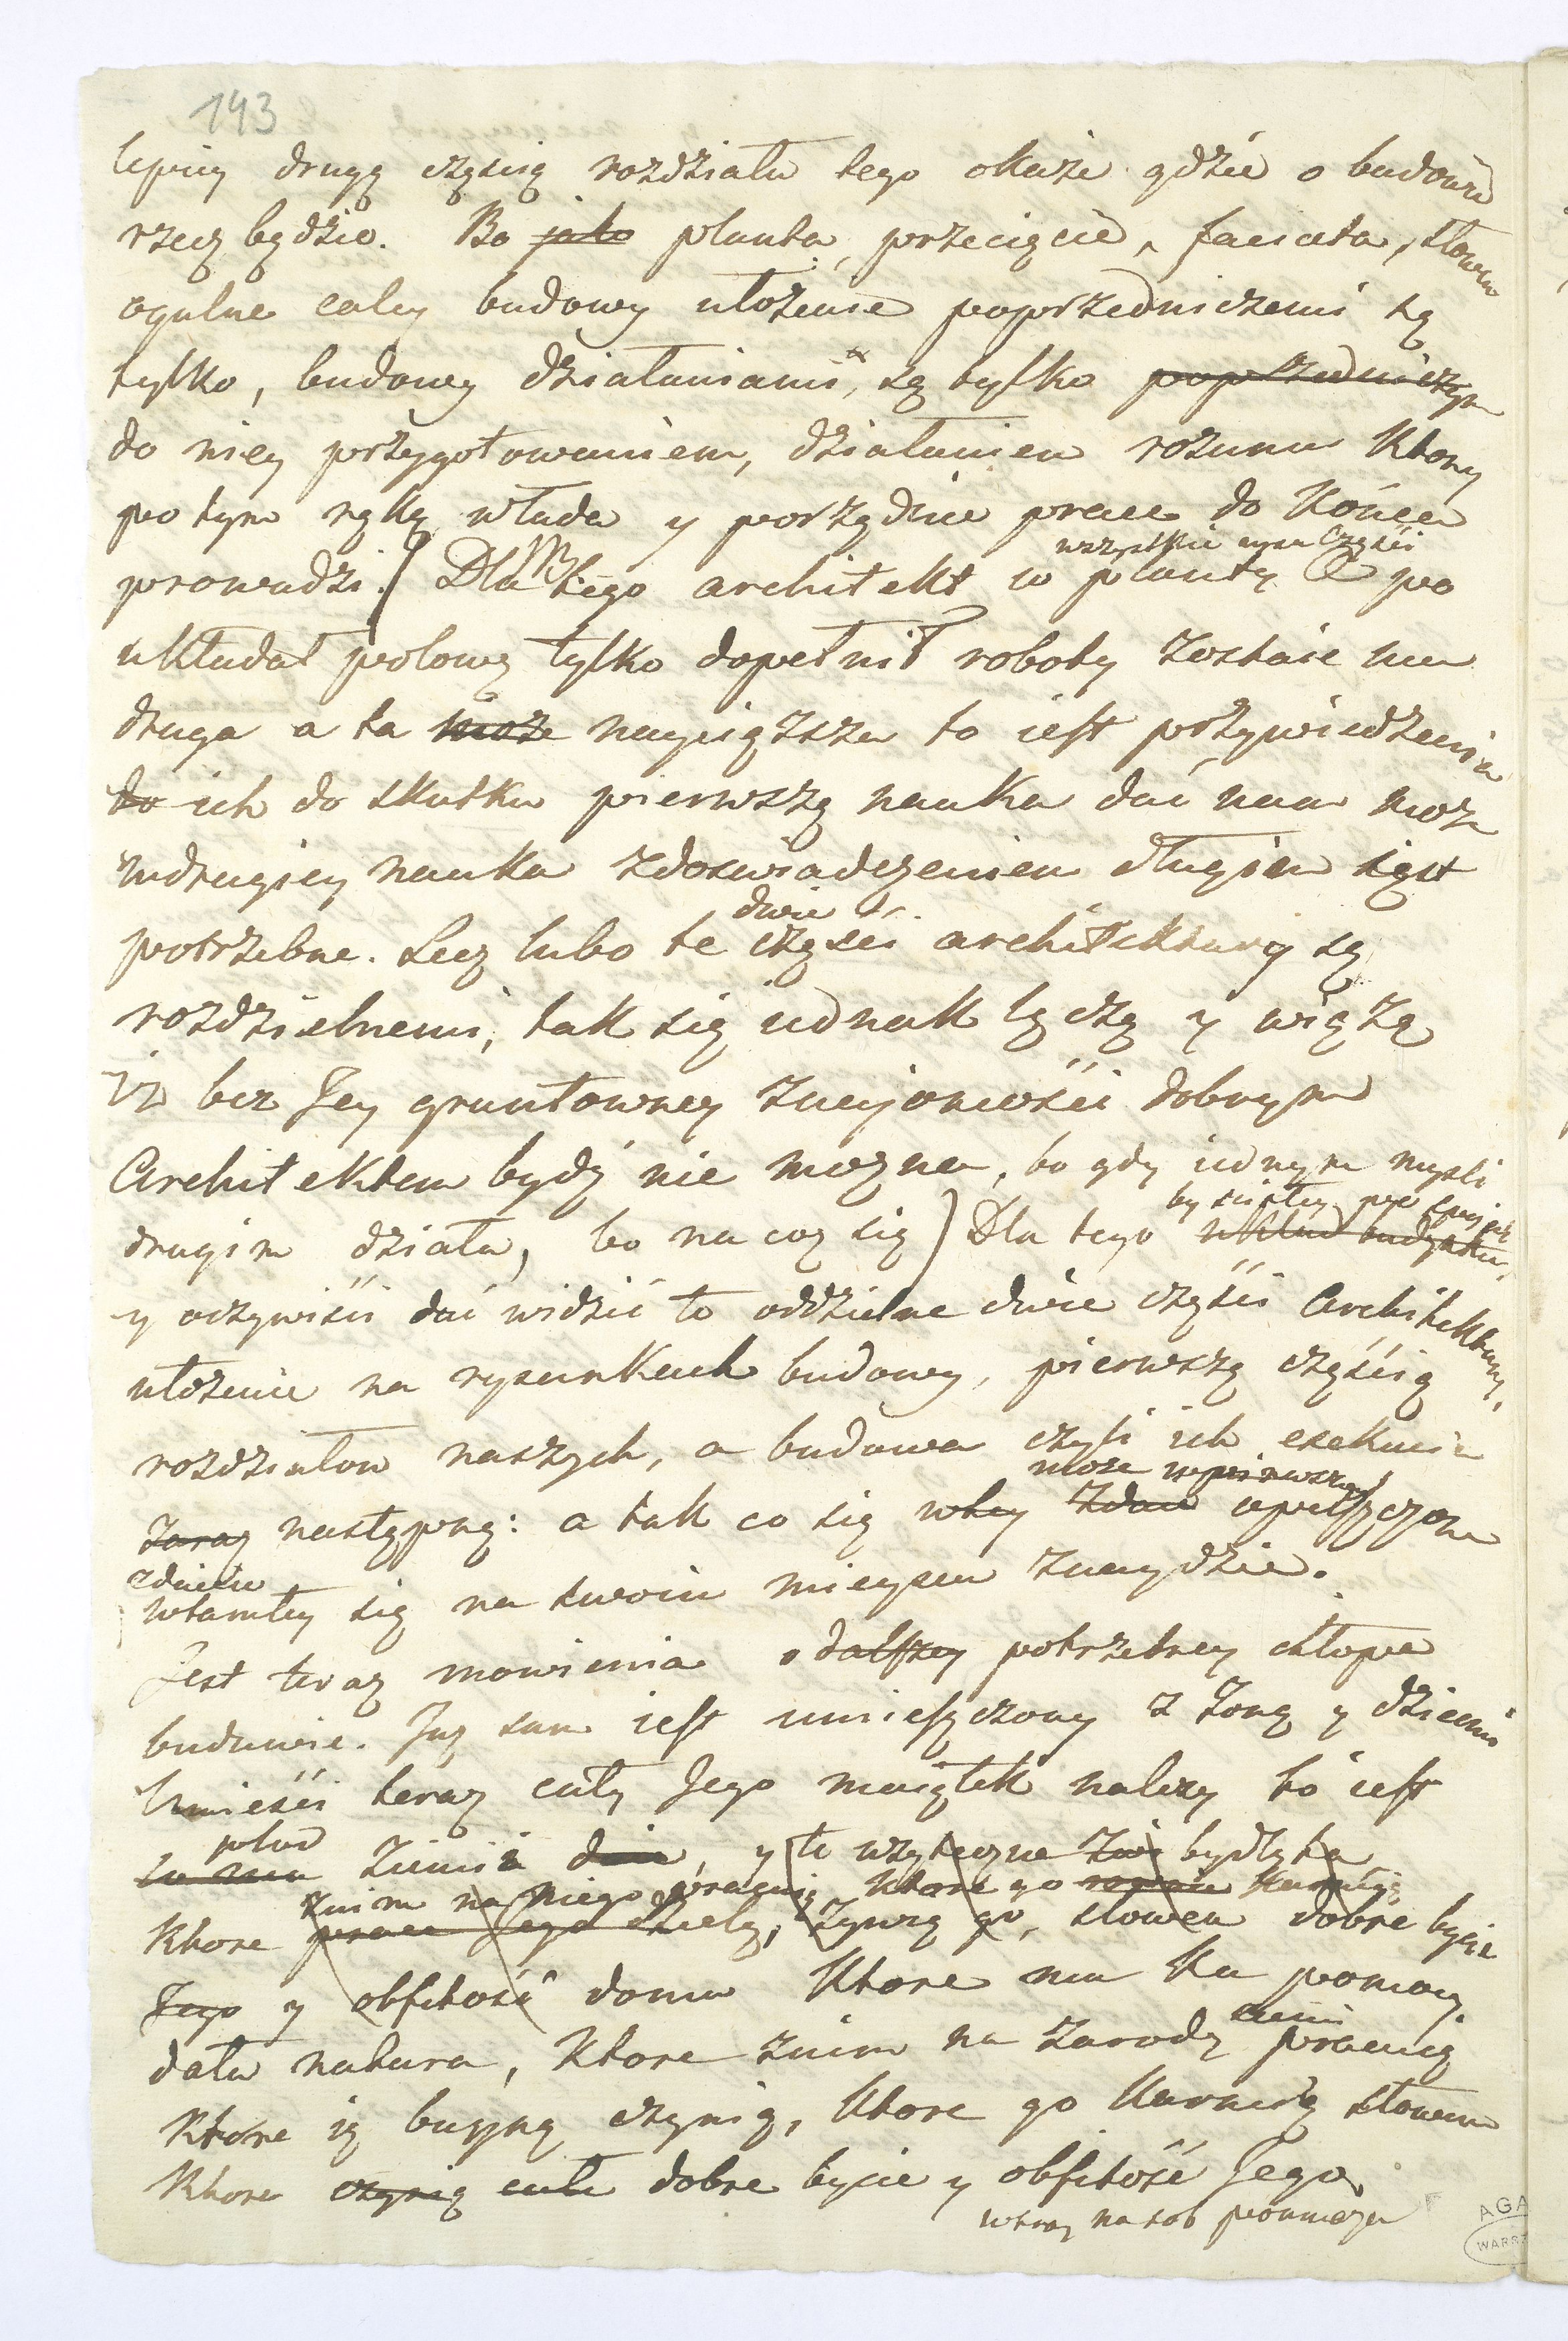 143
lepiey drugą częścią rozdziału tego okaże gdźie o budowie
rzecz będźie. Bo jako planta, przecięcie, faciata, słowem
ogulne całey budowy ułożenie poprzedniczemi są
tylko, budowy działaniami, są tylko poprzedniczym
do niey przygotowaniem, działaniem rozumu ktory
po tym ręką włada y porządnie prace do końca
wszystkie części
prowadzi. Dla tego architekt w plantę po
układał połowę tylko dopełnił roboty zostaie mu
druga a ta może nayciąższa to iest przywiedzenia
do ich do skutku pierwszą nauka dać nam może
wdrugiey nauka zdoswiadczeniem długim są
potrzebne. Lecz lubo te dwie części architektury są
rozdzielnemi, tak się iednak łączą y wiążą
iż bez Jey gruntowney znaiomości dobrym
Architektem bydź nie można, bo gdy iednym mysli
drugim działa, bo na coz się) Dla tego układ budynku,
y oczywiści dać widzić te oddzielne dwie części Architektury,
ułożenie na rysunkach budowy, pierwszą częścią
rozdziałow naszych, a budowa czyli ich exekucia
może wpierwszey
zaraz następną: a tak co się wtey zdaie opuszczone
wtamtey się na swoim mieyscu znaydzie.
Jest teraz mowienia o dalszey potrzebney chłopu
budowie. Juz sam iest umieszczony z Zoną y dziecmi
Umieści teraz cały Jego maiątek należy to iest
płod
ziemia daie, y te użyteczne bydlęta
znim na niego pracuią ktore go karmią
Ktore prace Jego dzielą, żywią go, słowem dobre bycie
Jego y obfitość domu Ktore mu ku pomocy
dała natura, Ktore znim na zarody pracuią
Ktore ią buyną czynią, Ktore go karmią słowem
Ktore czynią całe dobre bycie y obfitość Jego
pomnaża